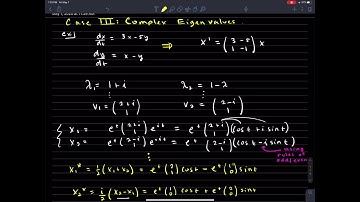 Case III: Complex Eigenvalues.
ex) dx/dt = 3x - 5y
dy/dt = x - y
⇒ X' = (3 -5; 1 -1) X
λ₁ = 1+i λ₂ = 1-i
V₁ = (2+i; 1) V₂ = (2-i; 1)
X₁ = e^t (2+i; 1) e^it = e^t (2+i; 1)(cost + i sint)
X₂ = e^t (2-i; 1) e^-it = e^t (2-i; 1)(cost - i sint)
using rules of odd/even
X₁* = ½(X₁+X₂) = e^t (2; 1) cost - e^t (1; 0) sint
X₂* = i/2 (X₂-X₁) = e^t (1; 0) cost + e^t (2; 1) sint